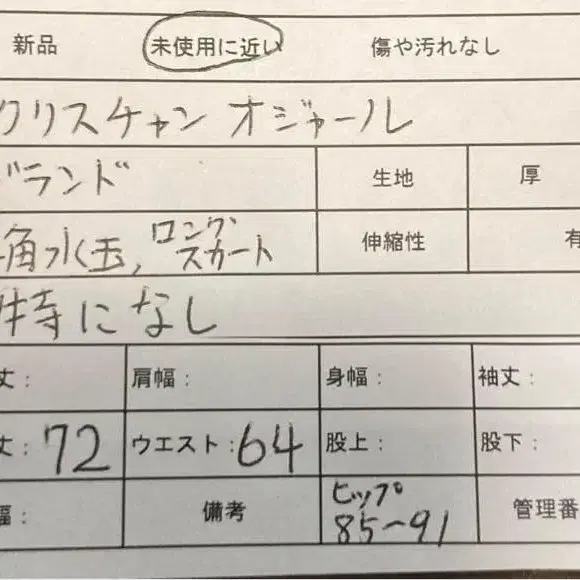 新品 未使用に近い 傷や汚れなし
クリスチャン オジャール
ブランド 生地 厚
角水玉, ロングスカート 伸縮性 有
特になし
丈: 肩幅: 身幅: 袖丈:
丈: 72 ウエスト: 64 股上: 股下:
幅: 備考 ヒップ 85~91 管理番